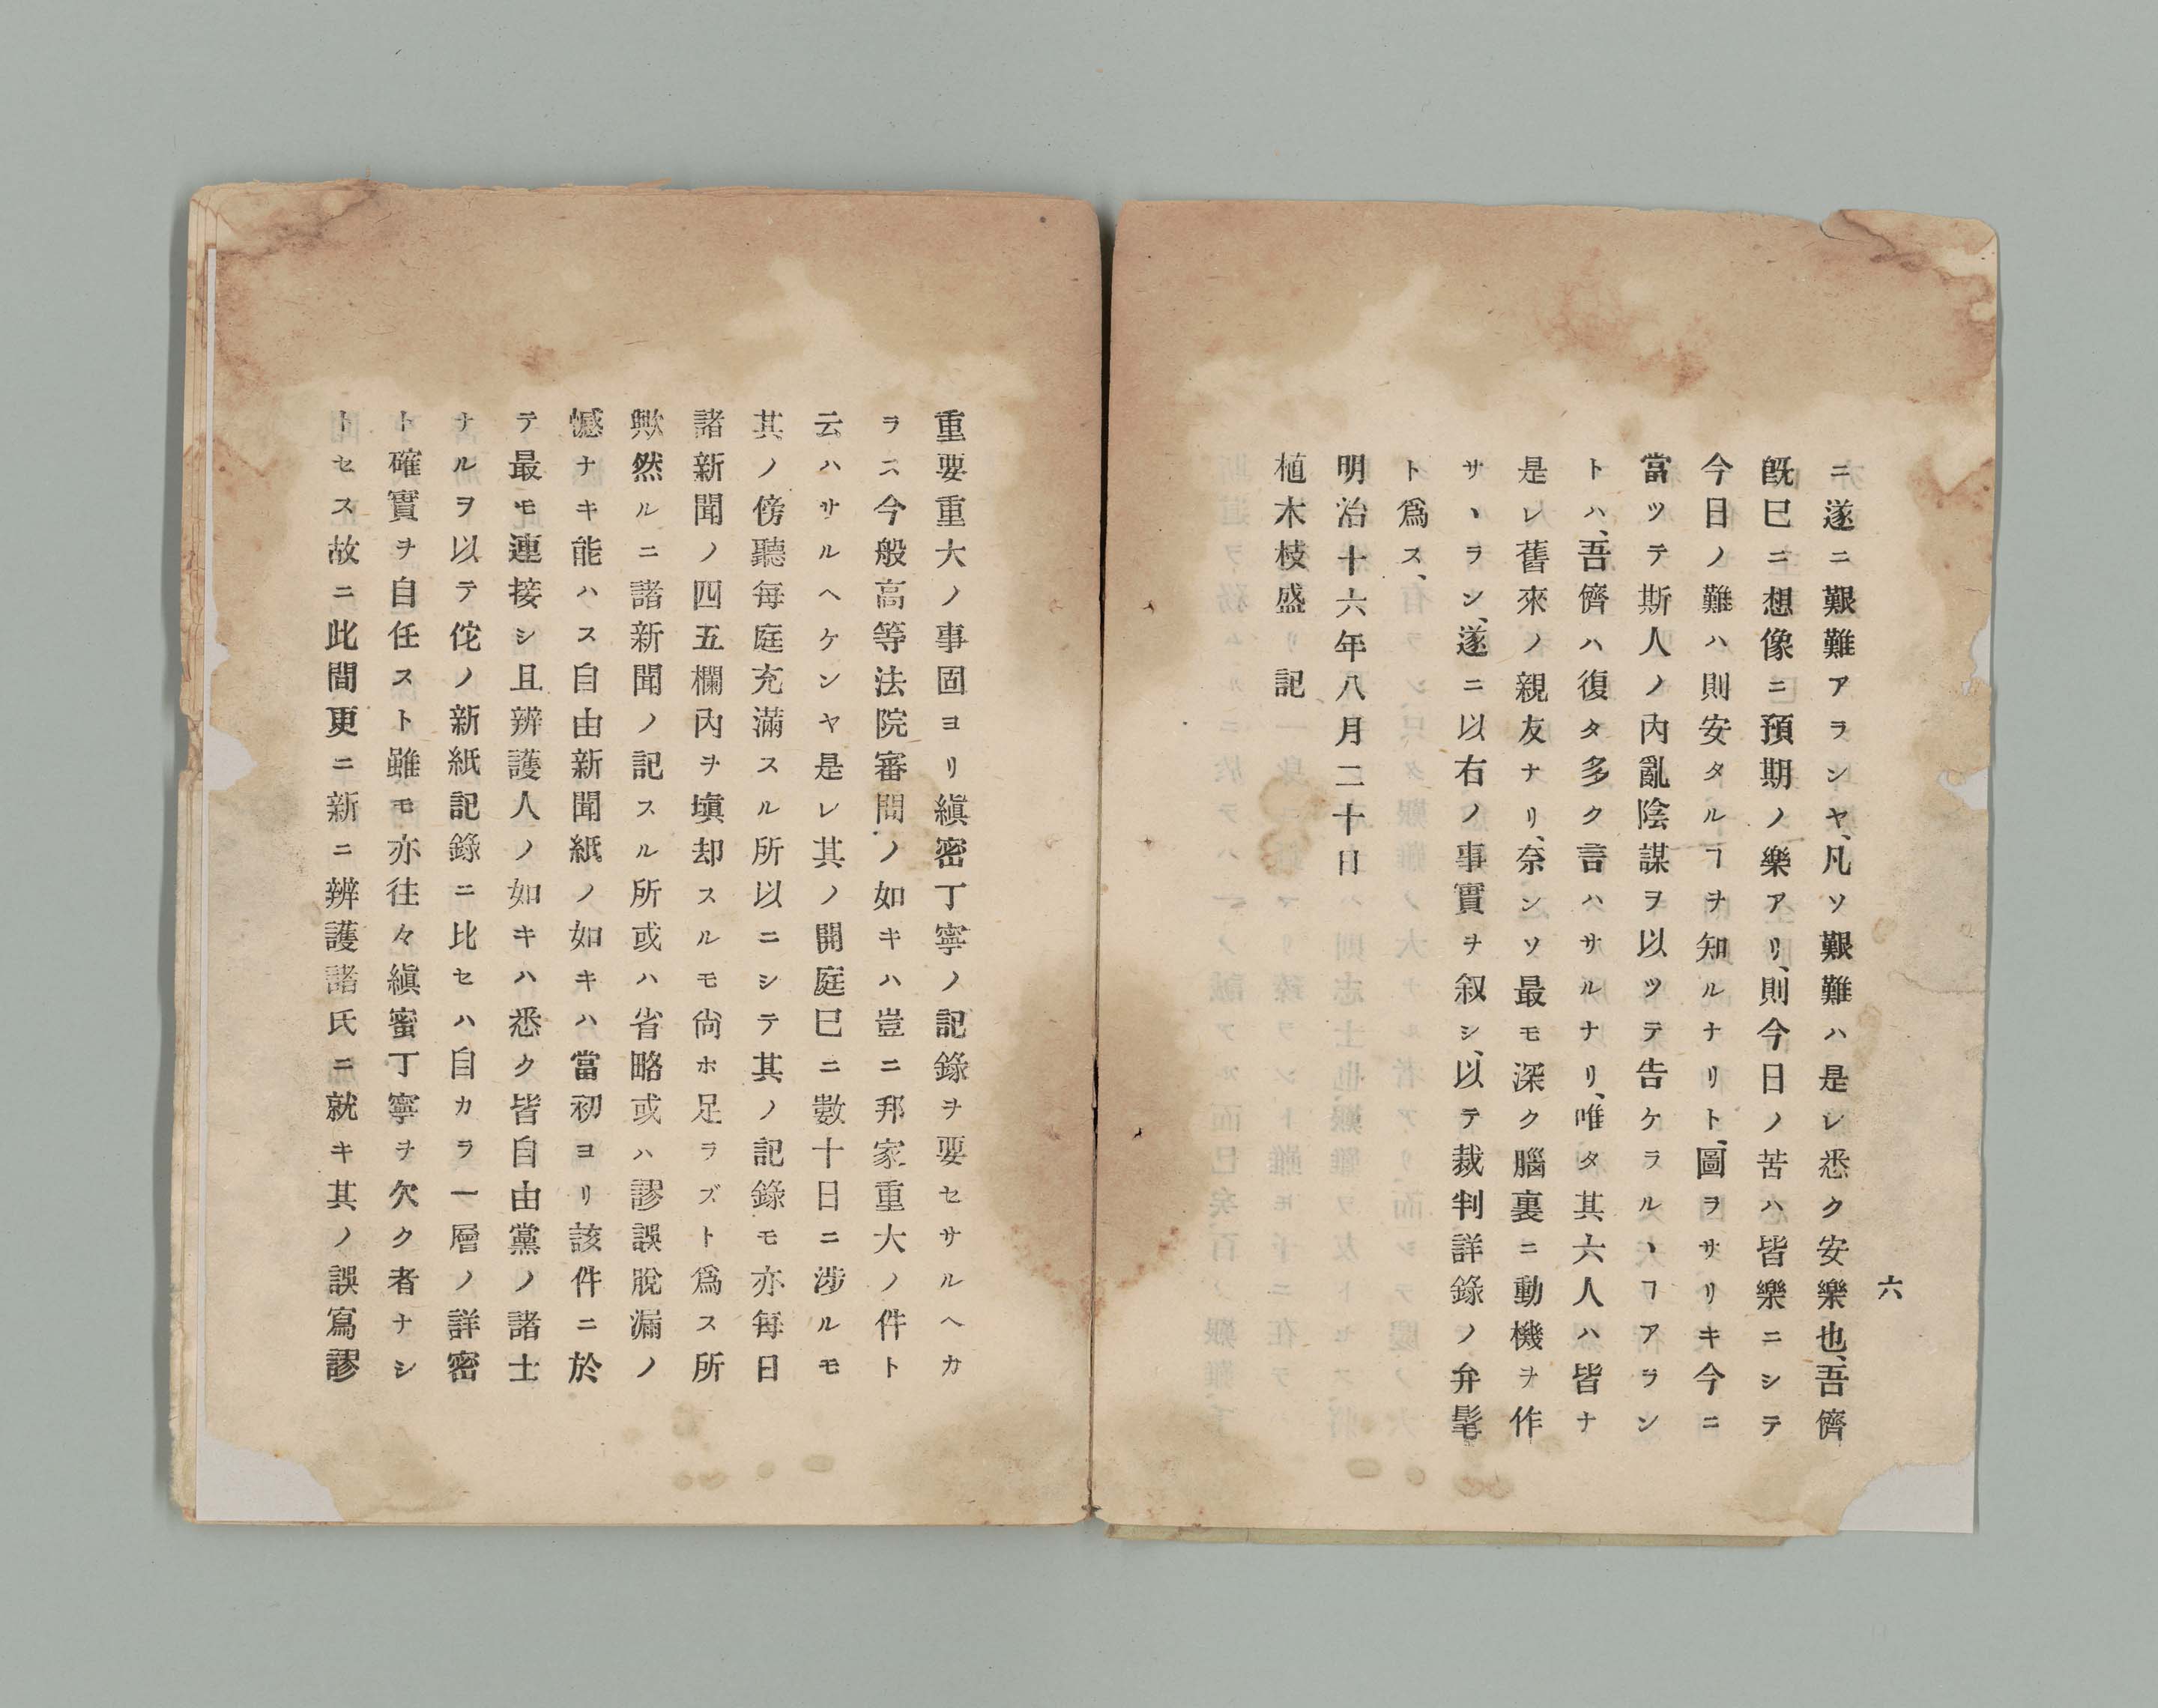 六
ニ遂ニ艱難アラシヤ、凡ソ艱難ハ是レ悉ク安樂也、吾儕
旣巳ニ想像ニ預期ノ樂アリ、則今日ノ苦ハ皆樂ニシテ
今日ノ難ハ則安タルヿヲ知ルナリト、圖ヲサリキ今ニ
當ツテ斯人ノ內亂陰謀ヲ以ツテ告ケラルヽヿアラン
トハ、吾儕ハ復タ多ク言ハサルナリ、唯タ其六人ハ皆ナ
是レ舊來ノ親友ナリ、奈ンソ最モ深ク腦裏ニ動機ヲ作
サヽラン、遂ニ以右ノ事實ヲ叙シ、以テ裁判詳錄ノ弁髦
ト爲ス、
明治十六年八月二十日
植木枝盛　記
重要重大ノ事固ヨリ縝密丁寧ノ記錄ヲ要セサルヘカ
ラス今般高等法院審問ノ如キハ豈ニ邦家重大ノ件ト
云ハサルヘケンヤ是レ其ノ開庭巳ニ數十日ニ涉ルモ
其ノ傍聽每庭充滿スル所以ニシテ其ノ記錄モ亦每日
諸新聞ノ四五欄內ヲ塡却スルモ尙ホ足ラズト爲ス所
歟然ルニ諸新聞ノ記スル所或ハ省略或ハ謬誤脫漏ノ
憾ナキ能ハス自由新聞紙ノ如キハ當初ヨリ該件ニ於
テ最モ連接シ且辨護人ノ如キハ悉ク皆自由黨ノ諸士
ナルヲ以テ佗ノ新紙記錄ニ比セハ自カラ一層ノ詳密
ト確實ヲ自任スト雖モ亦往々縝蜜丁寧ヲ欠ク者ナシ
トセス故ニ此間更ニ新ニ辨護諸氏ニ就キ其ノ誤寫謬